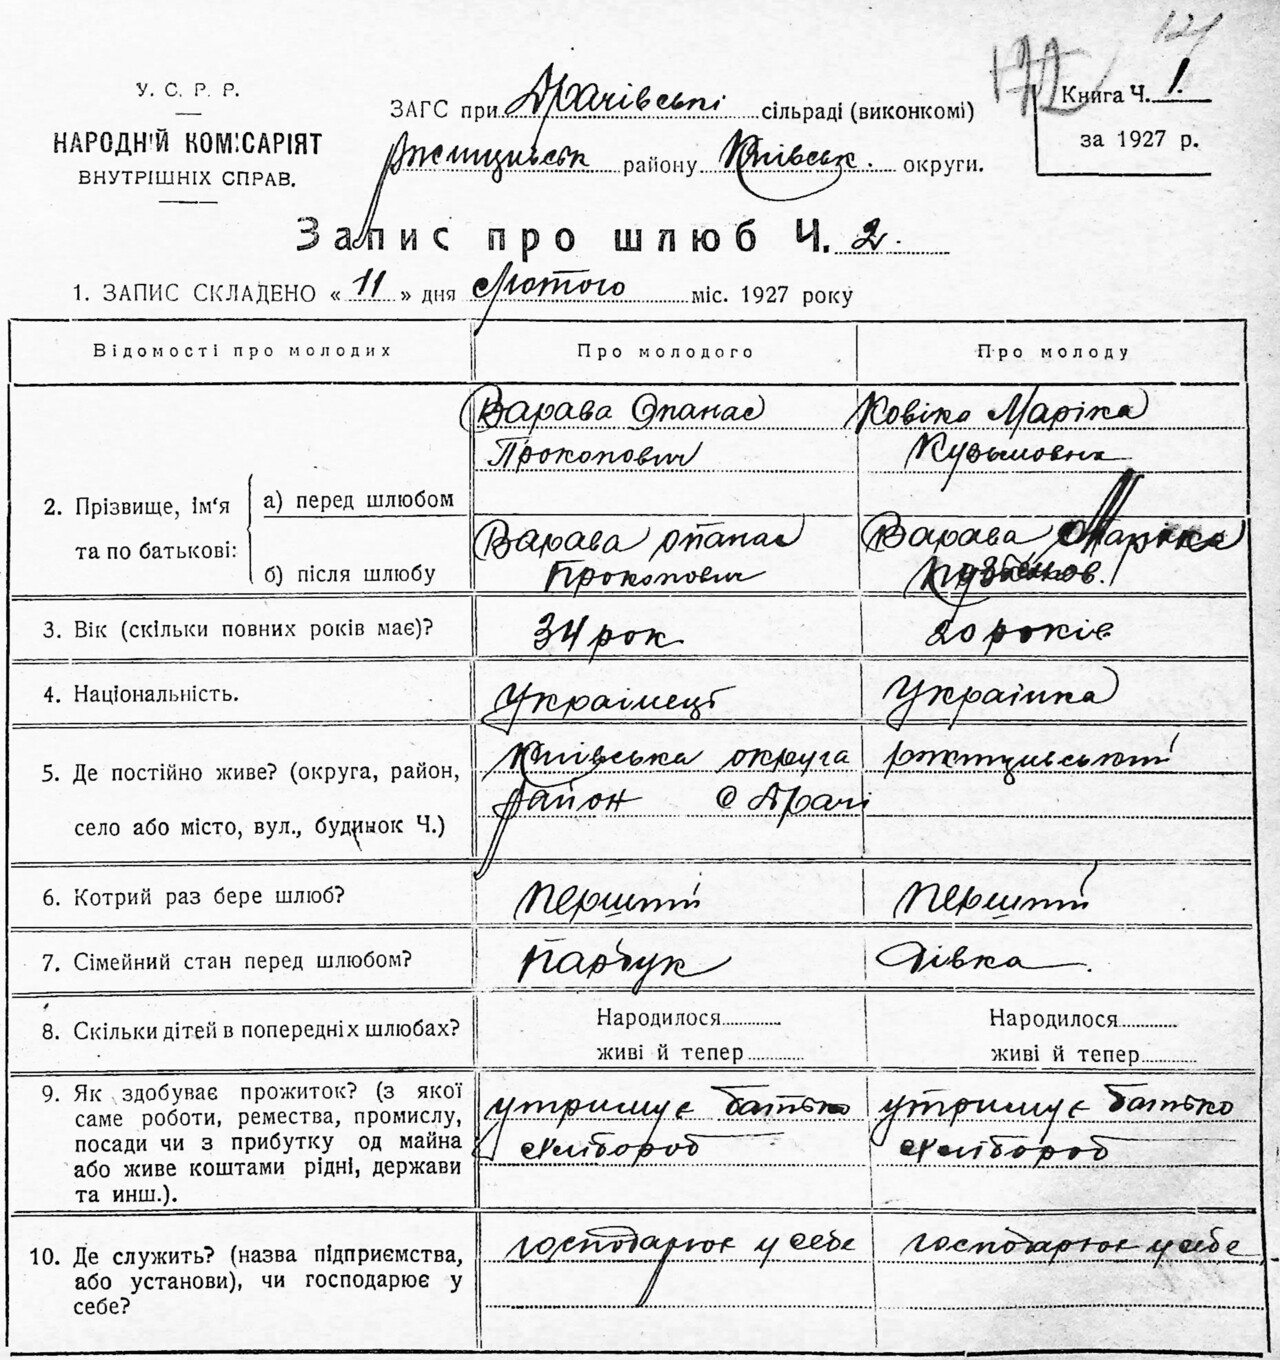 У. С. Р. Р.
НАРОДНІЙ КОМІСАРІЯТ
ВНУТРІШНІХ СПРАВ.
ЗАГС при Драчівські сільраді (виконкомі)
Ржищівськ району Київськ. округи.
Книга Ч. 1
за 1927 р.
Запис про шлюб Ч. 2.
1. ЗАПИС СКЛАДЕНО « 11 » дня Лютого міс. 1927 року
Відомості про молодих Про молодого Про молоду
Варава Опанас
Прокопович
Ковіка Маріка
Кузьмовна
2. Прізвище, ім'я та по батькові:
а) перед шлюбом
б) після шлюбу
Варава Опанас
Прокопович
Варава Маріка
3. Вік (скільки повних років має)? 34 рок 20 років
4. Національність. Украінець Украінка
5. Де постійно живе? (округа, район,
село або місто, вул., будинок Ч.)
Київська округа ржищивський
район с Драчі
6. Котрий раз бере шлюб? перший перший
7. Сімейний стан перед шлюбом? парубук дівка
8. Скільки дітей в попередніх шлюбах?
Народилося
живі й тепер
Народилося
живі й тепер
9. Як здобуває прожиток? (з якої
саме роботи, ремества, промислу,
посади чи з прибутку од майна
або живе коштами рідні, держави
та инш.).
утримує батько
хлібороб
утримує батько
хлібороб
10. Де служить? (назва підприємства,
або установи), чи господарює у
себе?
господарює у себе
господарює у себе